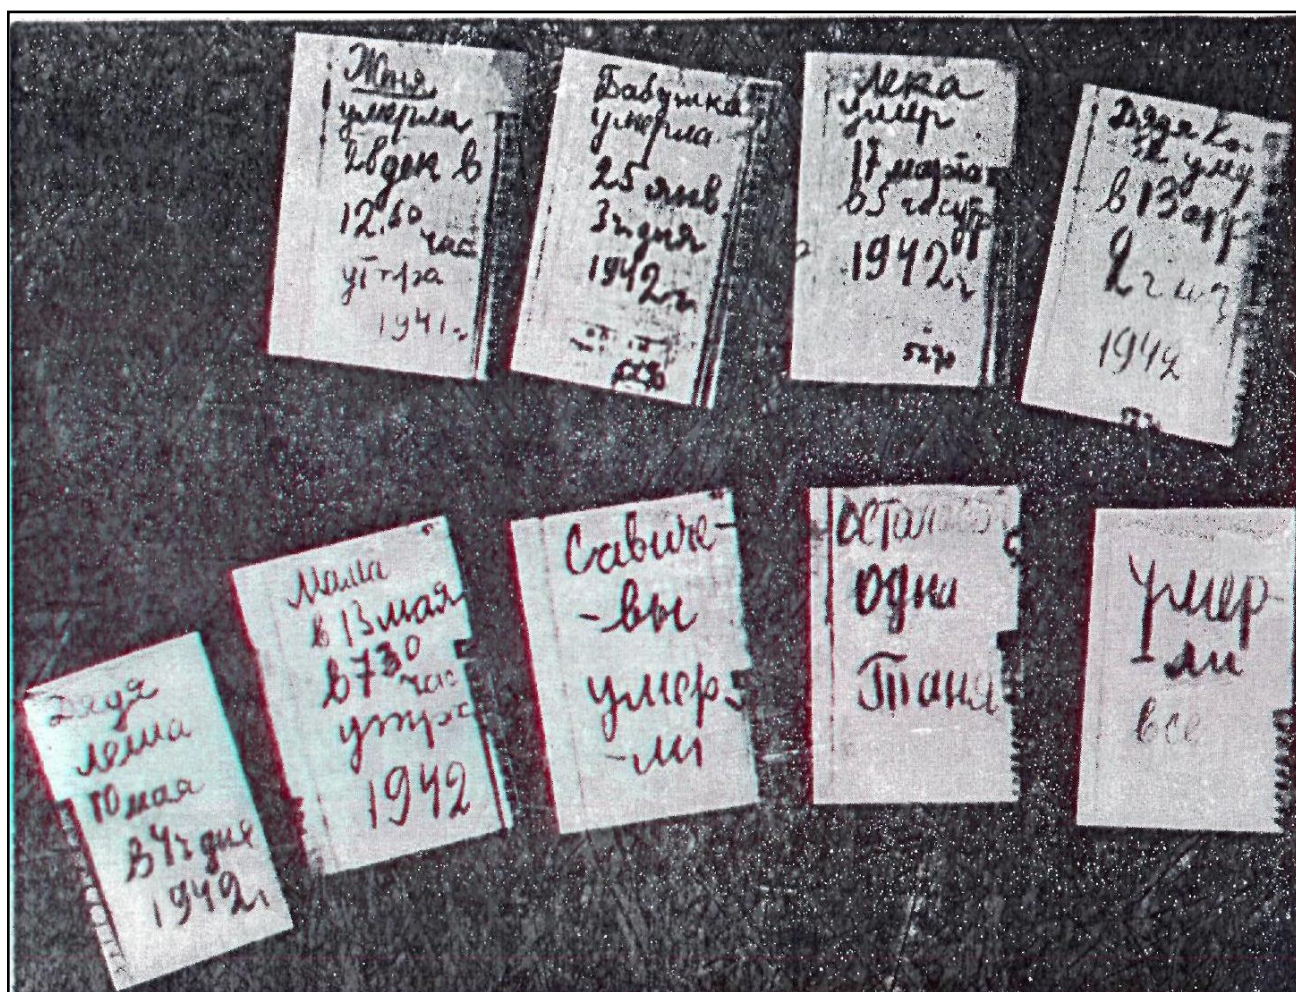 Женя
умерла
28 дек в
12.30
час
утра
1941 г.
Бабушка
умерла
25 янв.
3 ч. дня
1942 г.
Лека
умер
17 марта
в 5 час утр
1942 г
Дядя
умер
в 13 апр
2 ч
1942
Дядя
Леша
10 мая
в 4 ч дня
1942 г
Мама
в 13 мая
в 7 30
час
утра
1942
Савиче-
-вы
умер-
-ли
осталась
одна
Таня
Умер-
-ли
все